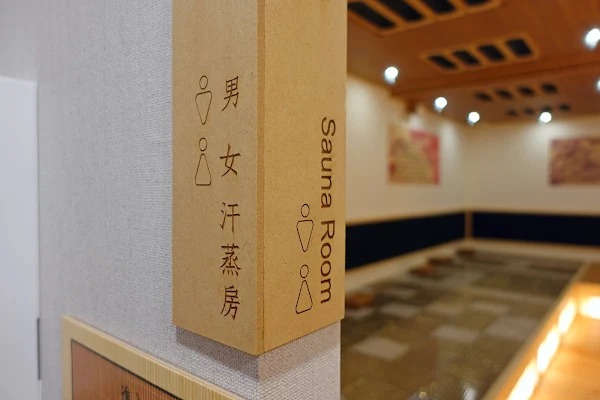 男 女 汗蒸房
Sauna Room